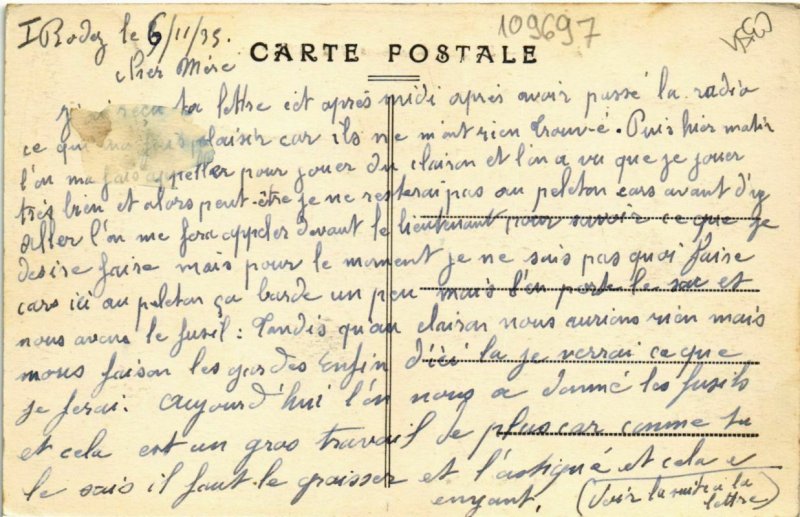 I Rodez le 6/11/35.
109697
CARTE POSTALE
Cher Mère
j'ai reçu ta lettre cet après midi après avoir passé la radio
ce qui ma fais plaisir car ils ne m'ont rien trouvé. Puis hier matin
l'on ma fais appeller pour jouer du claison et l'on a vu que je jouer
très bien et alors peut-être je ne resterai pas au peleton cars avant d'y
aller l'on me fera appeler devant le lieutenant pour savoir ce que je
desire faire mais pour le moment je ne sais pas quoi faire
cars ici au peleton ça barde un peu mais l'on porte le sac et
nous avons le fusil : Tandis qu'au claison nous aurions rien mais
nous faison les gardes Enfin d'ici la je verrai ce que
je ferai. Aujourd'hui l'on nous a donné les fusils
et cela est un gros travail de plus car comme tu
le sais il faut le graisser et l'astiqué et cela e
enyant. (Voir la suite a la
lettre)